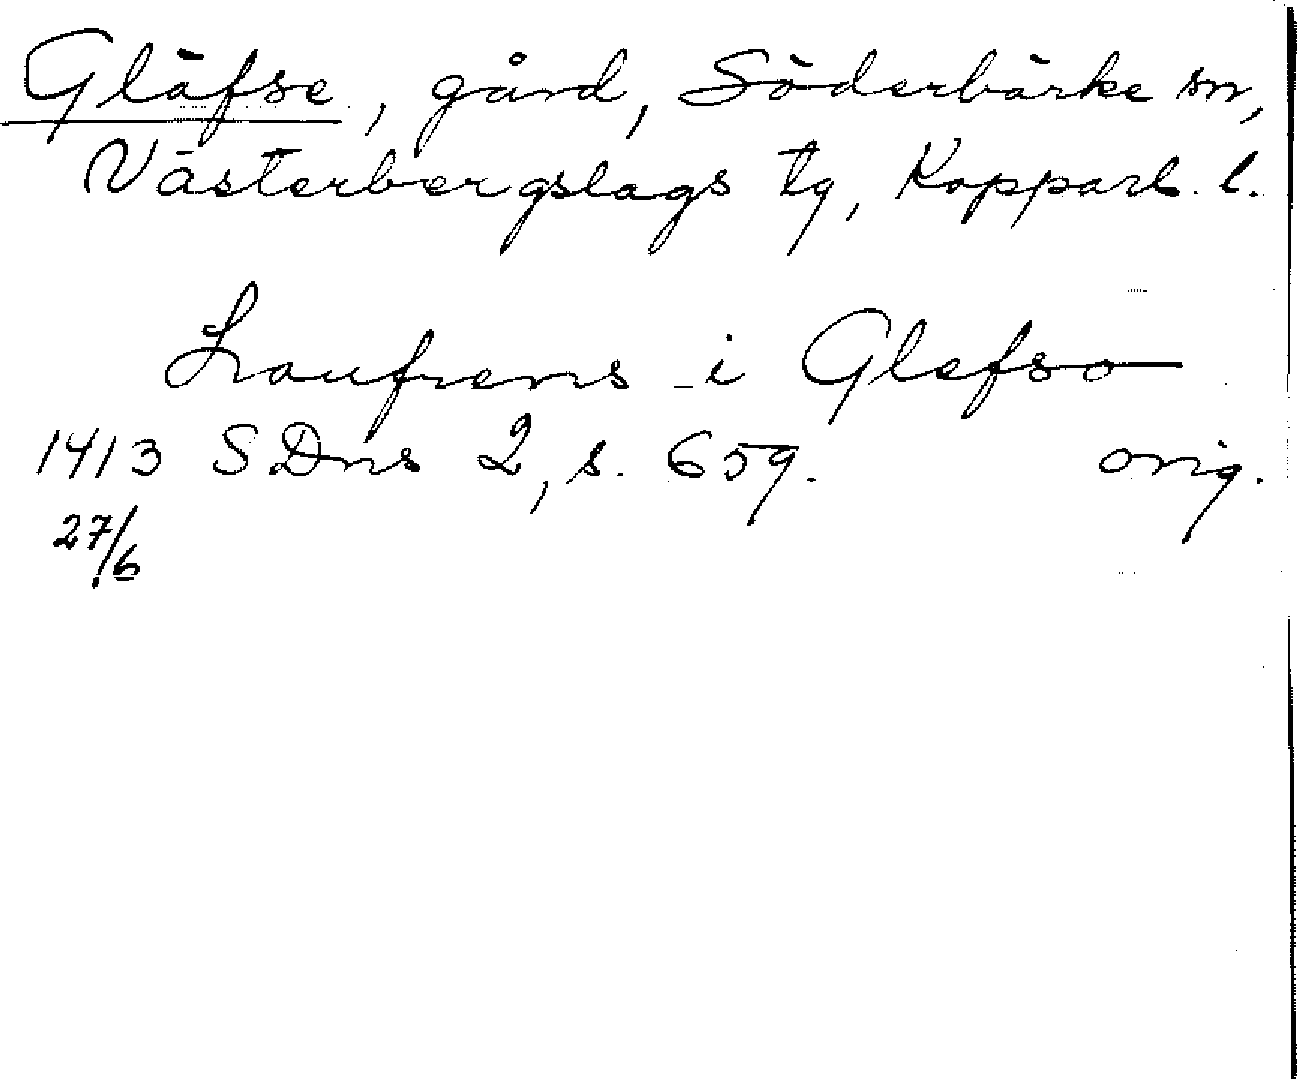 Gläfse, gård, Söderbärke sn,
Västerbergslags tg, Kopparb. l.
Laufrens i Glefso
1413 SDns 2, s. 659. orig.
27/6